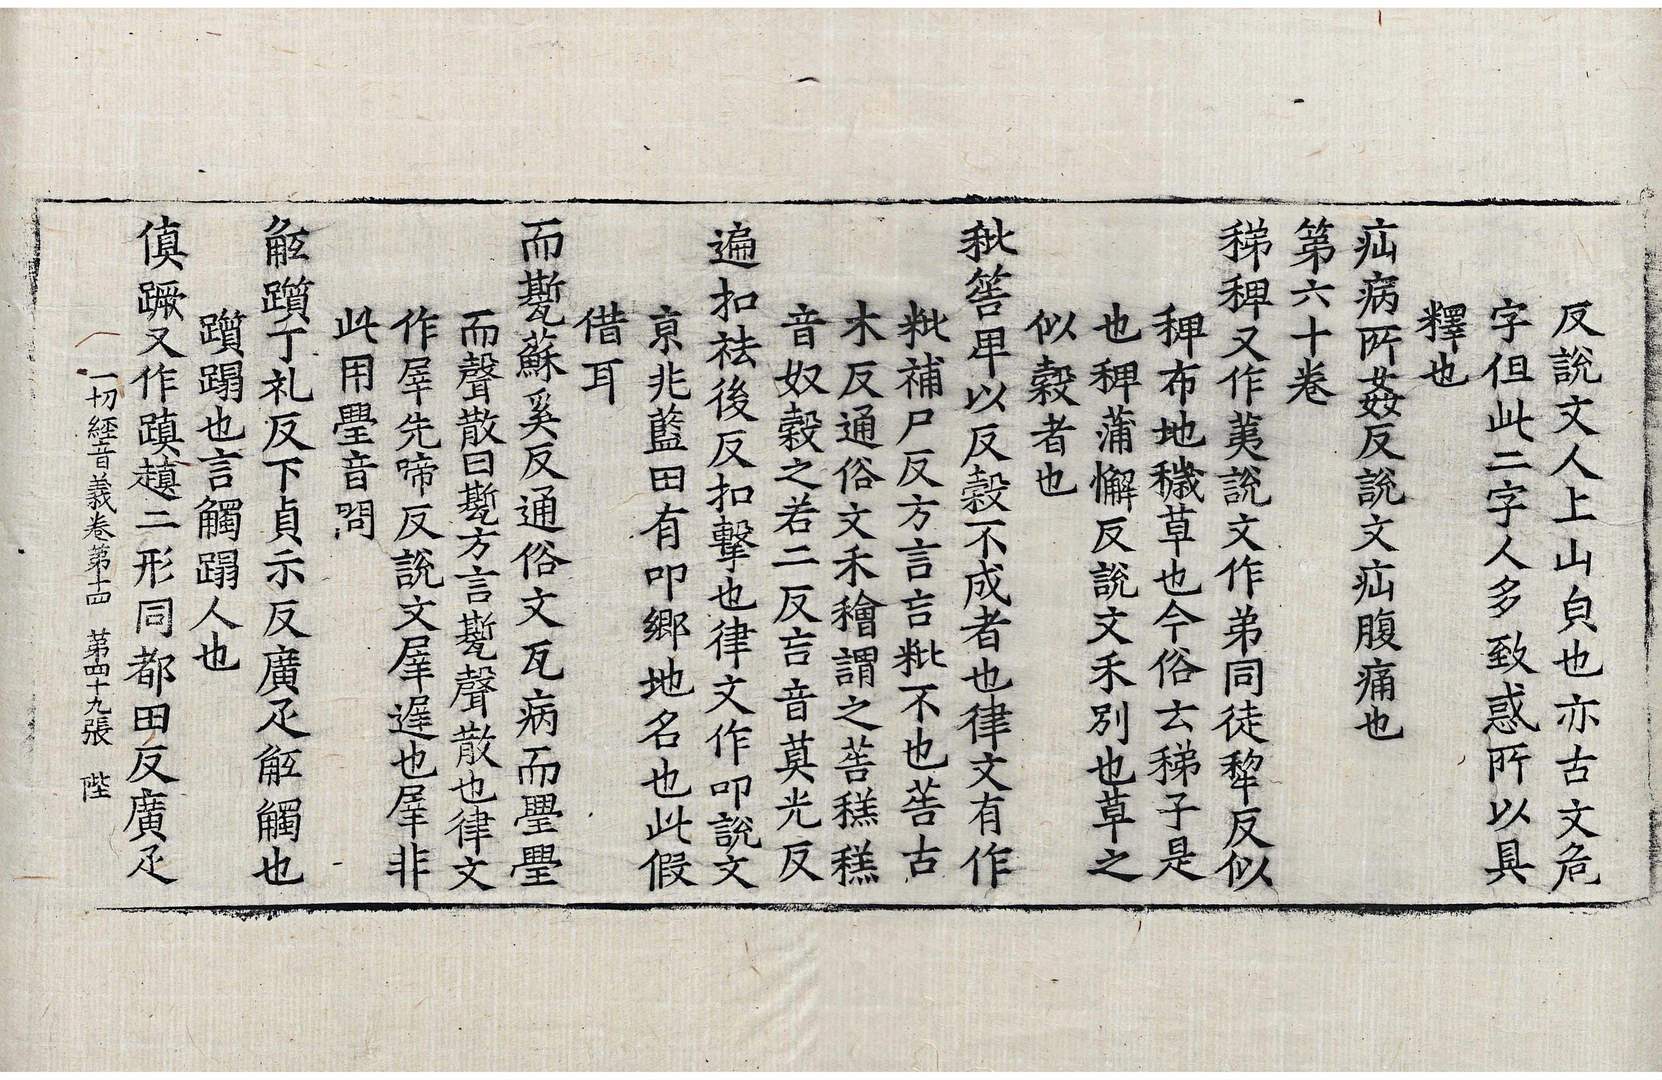 反說文人上山皃也亦古文危
字但此二字人多致惑所以具
釋也
疝病所姦反說文疝腹痛也
第六十卷
稊稗又作蕛說文作苐同徒犂反似
稗布地穢草也今俗云稊子是
也稗蒲懈反說文禾別也草之
似穀者也
秕䅵卑以反穀不成者也律文有作
粃補尸反方言言粃不也䓊古
木反通俗文禾穧謂之䓊穅穅
音奴穀之若二反言音莫光反
遍扣祛後反扣擊也律文作叩說文
京兆藍田有叩鄉地名也此假
借耳
而㽄蘇奚反通俗文瓦病而璺璺
而聲散曰㽄方言㽄聲散也律文
作犀先啼反說文犀遲也犀非
此用璺音問
觝躓丁礼反下貞示反廣疋觝觸也
躓蹋也言觸蹋人也
傎蹶又作蹎趚二形同都田反廣疋
一切經音義卷第十四 第四十九張 陛